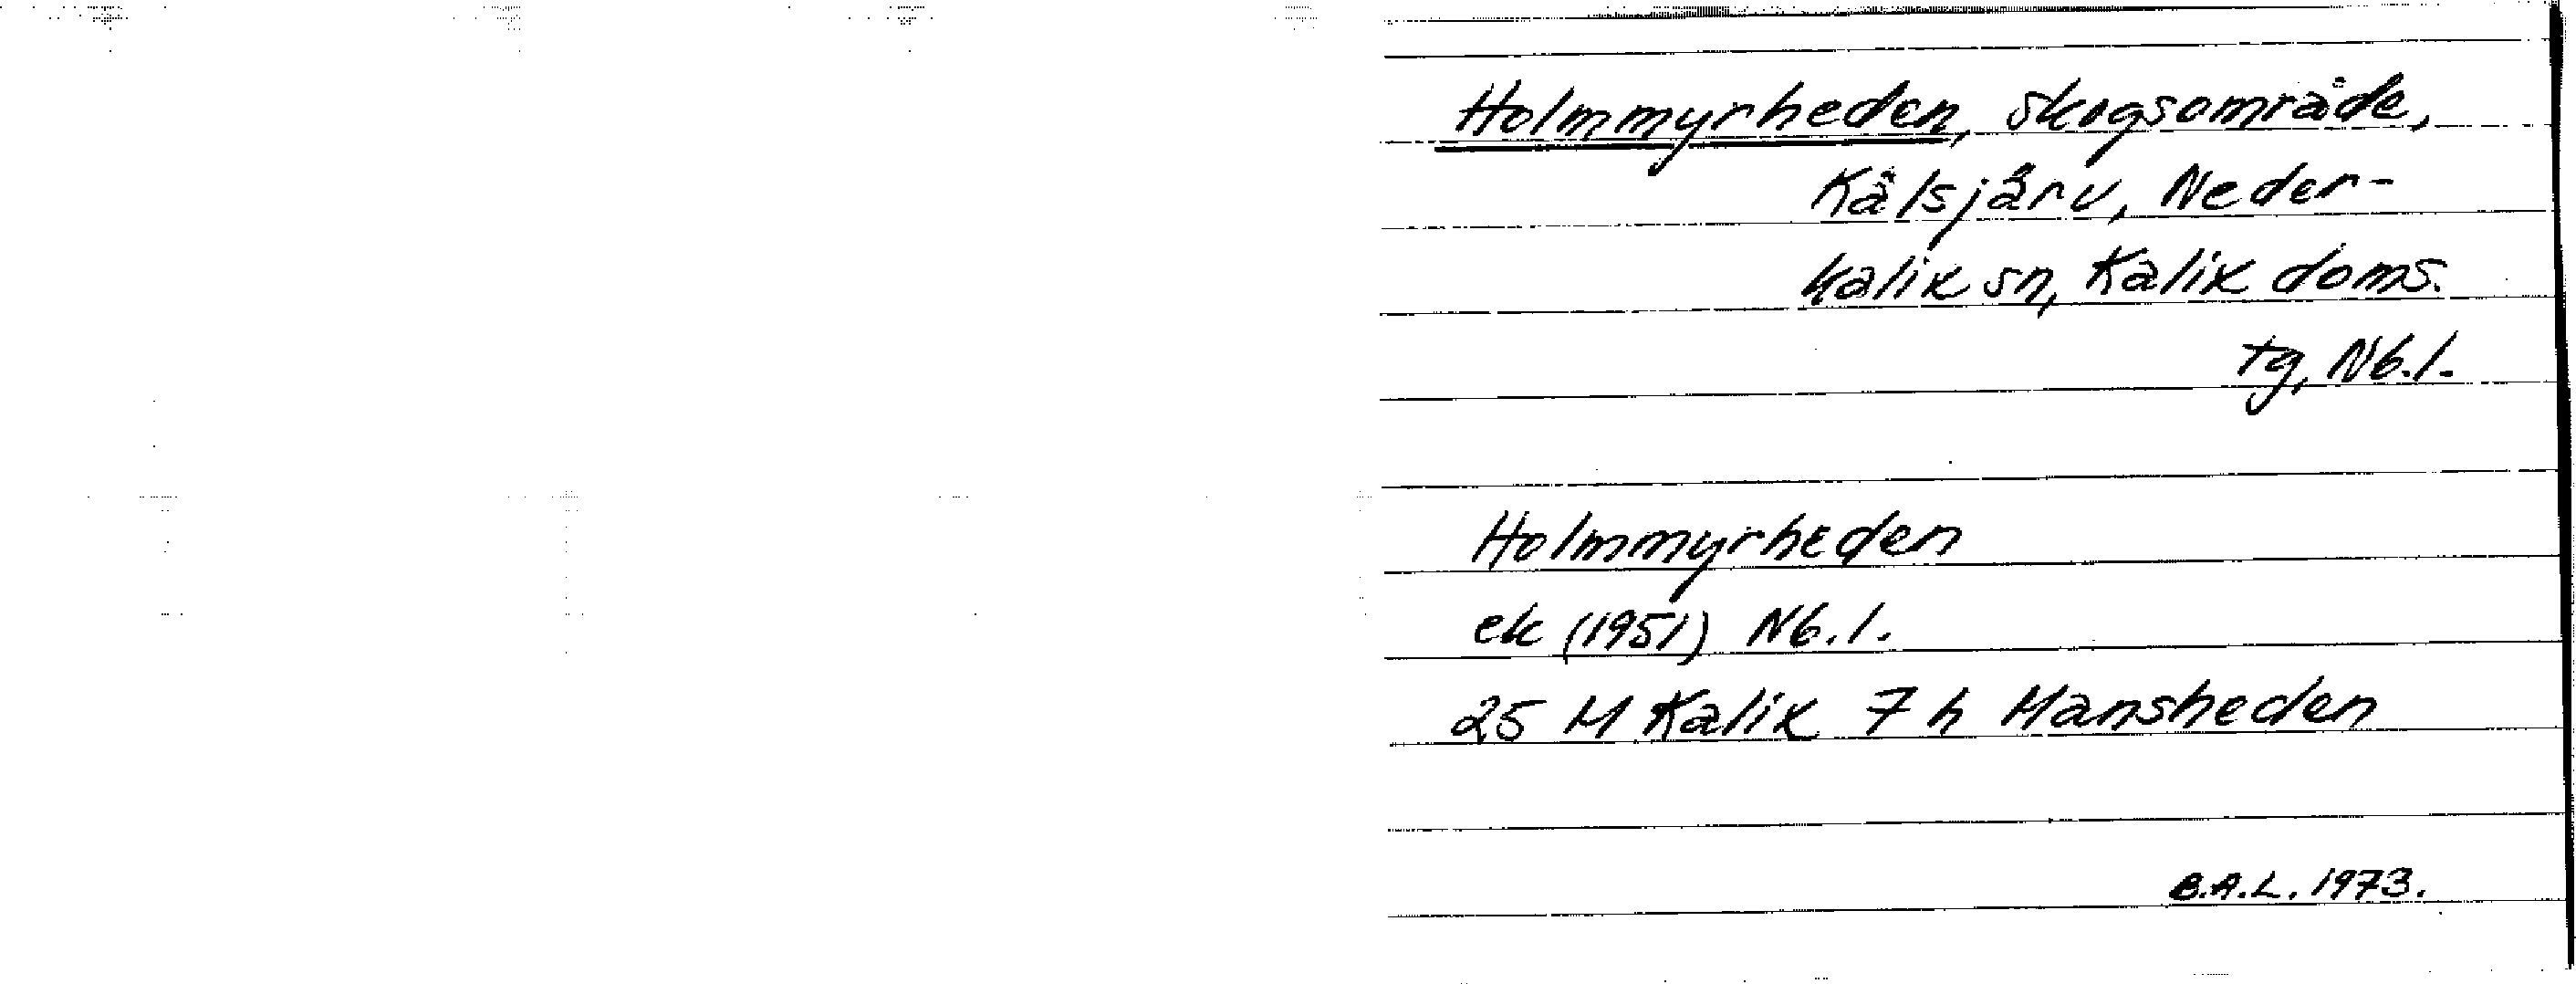 Holmmyrheden, skogsområde,
Kålsjärv, Neder-
kalix sn, Kalix doms.
tg, Nb.l.
Holmmyrheden
ek (1951) Nb.l.
25 M Kalix 7 h Mansheden
B.A.L. 1973.